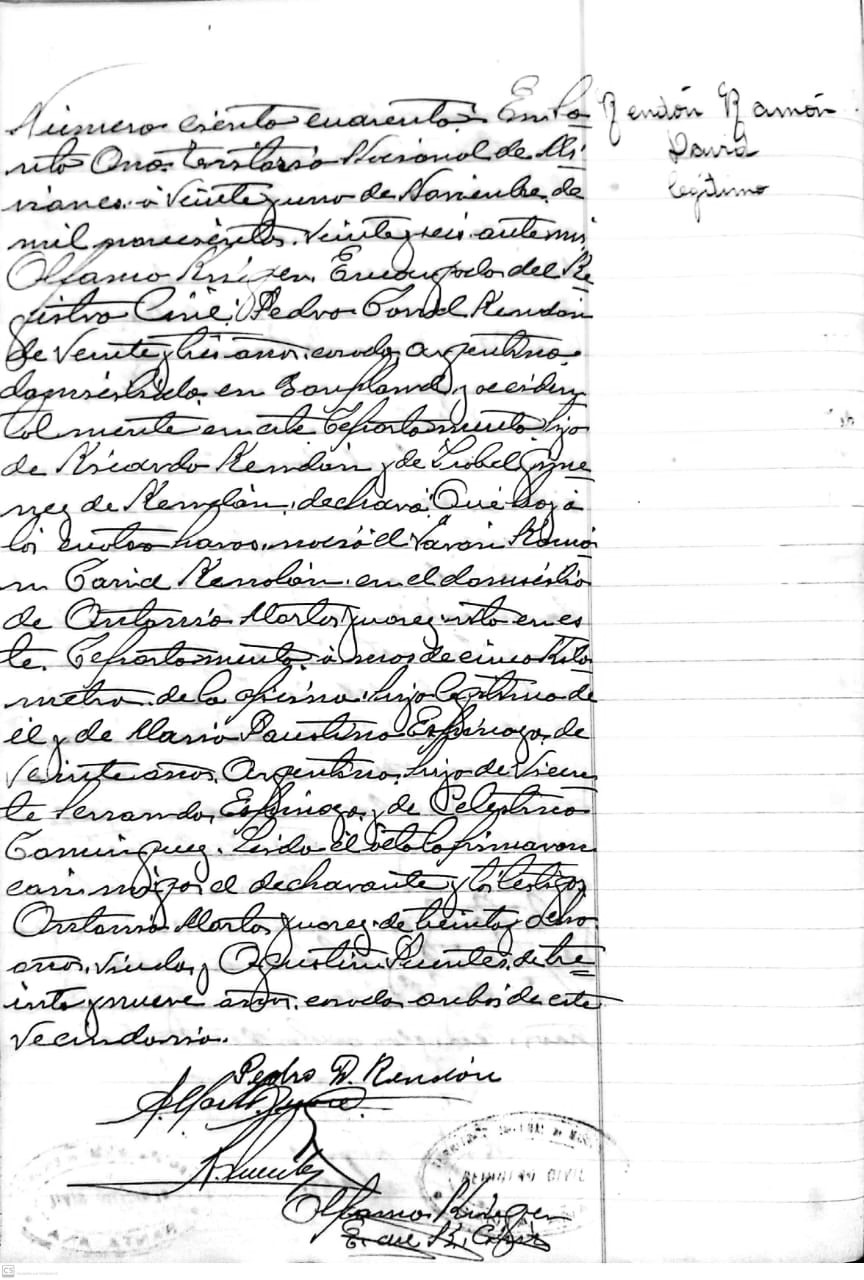 Número ciento cuarenta. En Sa=
nta Ana, territorio Nacional de Mi
siones. á veinte y uno de Noviembre de
mil novecientos. veinte y seis. ante mi
Encargado del Re=
gistro Civil; Pedro David Rendón
de veinte y tres años. casado. argentino.
domiciliado. en y acciden
talmente en este Departamento. hijo
de Ricardo Rendón y de Isabel Gime
nez de Rendón. declaró: Que hoy á
las cuatro horas. nació el varón Ramó
n David Rendón. en el domicilio
de Antonio Martos Juarez. sito en es
te. Departamento. á menos de cinco kiló
metros. de la oficina. hijo legitimo de
él y de Maria Faustina Espinoza. de
veinte años. Argentina. hija de Vicen
te Servando Espinoza y de Celestina
Dominguez. Leida el acta la firmaron
conmigo. el declarante y los testigos
Antonio Martos Juarez. de treinta y ocho
años. viudo. y Agustin Puentes. de tre=
inta y nueve años. casado. ambos de este
vecindario.
Rendón Ramón
David
legítimo
Pedro D. Rendón
A. Martos Juarez
A. Puentes
REGISTRO CIVIL
SANTA ANA